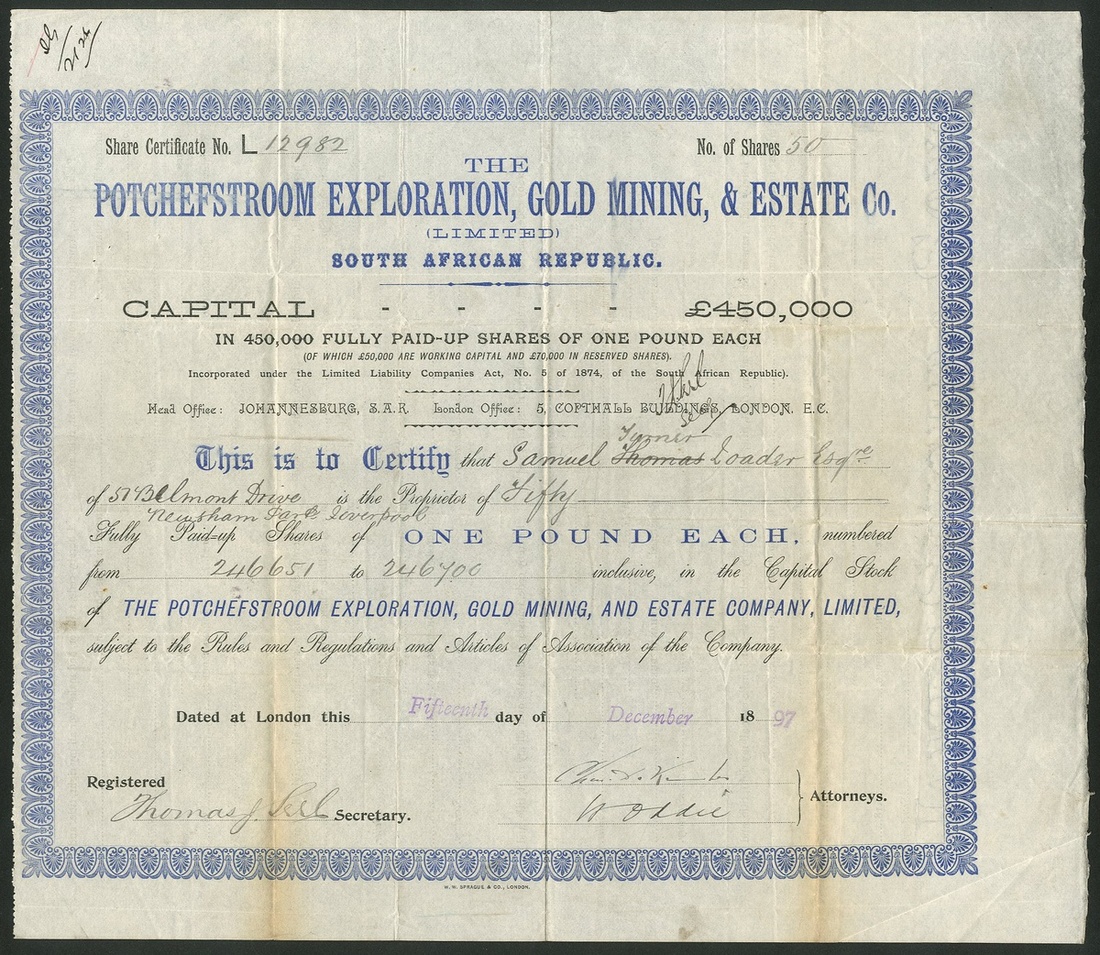 21 24
Share Certificate No. L 12982
No. of Shares 50
THE
POTCHEFSTROOM EXPLORATION, GOLD MINING, & ESTATE Co.
(LIMITED)
SOUTH AFRICAN REPUBLIC.
CAPITAL - - - - £450,000
IN 450,000 FULLY PAID-UP SHARES OF ONE POUND EACH
(OF WHICH £50,000 ARE WORKING CAPITAL AND £70,000 IN RESERVED SHARES).
Incorporated under the Limited Liability Companies Act, No. 5 of 1874, of the South African Republic).
Head Office: JOHANNESBURG, S.A.R. London Office: 5, COPTHALL BUILDINGS, LONDON, E.C.
Secy
Turner
This is to Certify that Samuel Thomas Loader Esqre
of 57 Belmont Drive is the Proprietor of Fifty
Newsham Park Liverpool
Fully Paid-up Shares of ONE POUND EACH, numbered
from 246651 to 246700 inclusive, in the Capital Stock
of THE POTCHEFSTROOM EXPLORATION, GOLD MINING, AND ESTATE COMPANY, LIMITED,
subject to the Rules and Regulations and Articles of Association of the Company.
Dated at London this Fifteenth day of December 1897
Registered
Thomas J. Secretary.
W Oddie
Attorneys.
W. W. SPRAGUE & CO., LONDON.